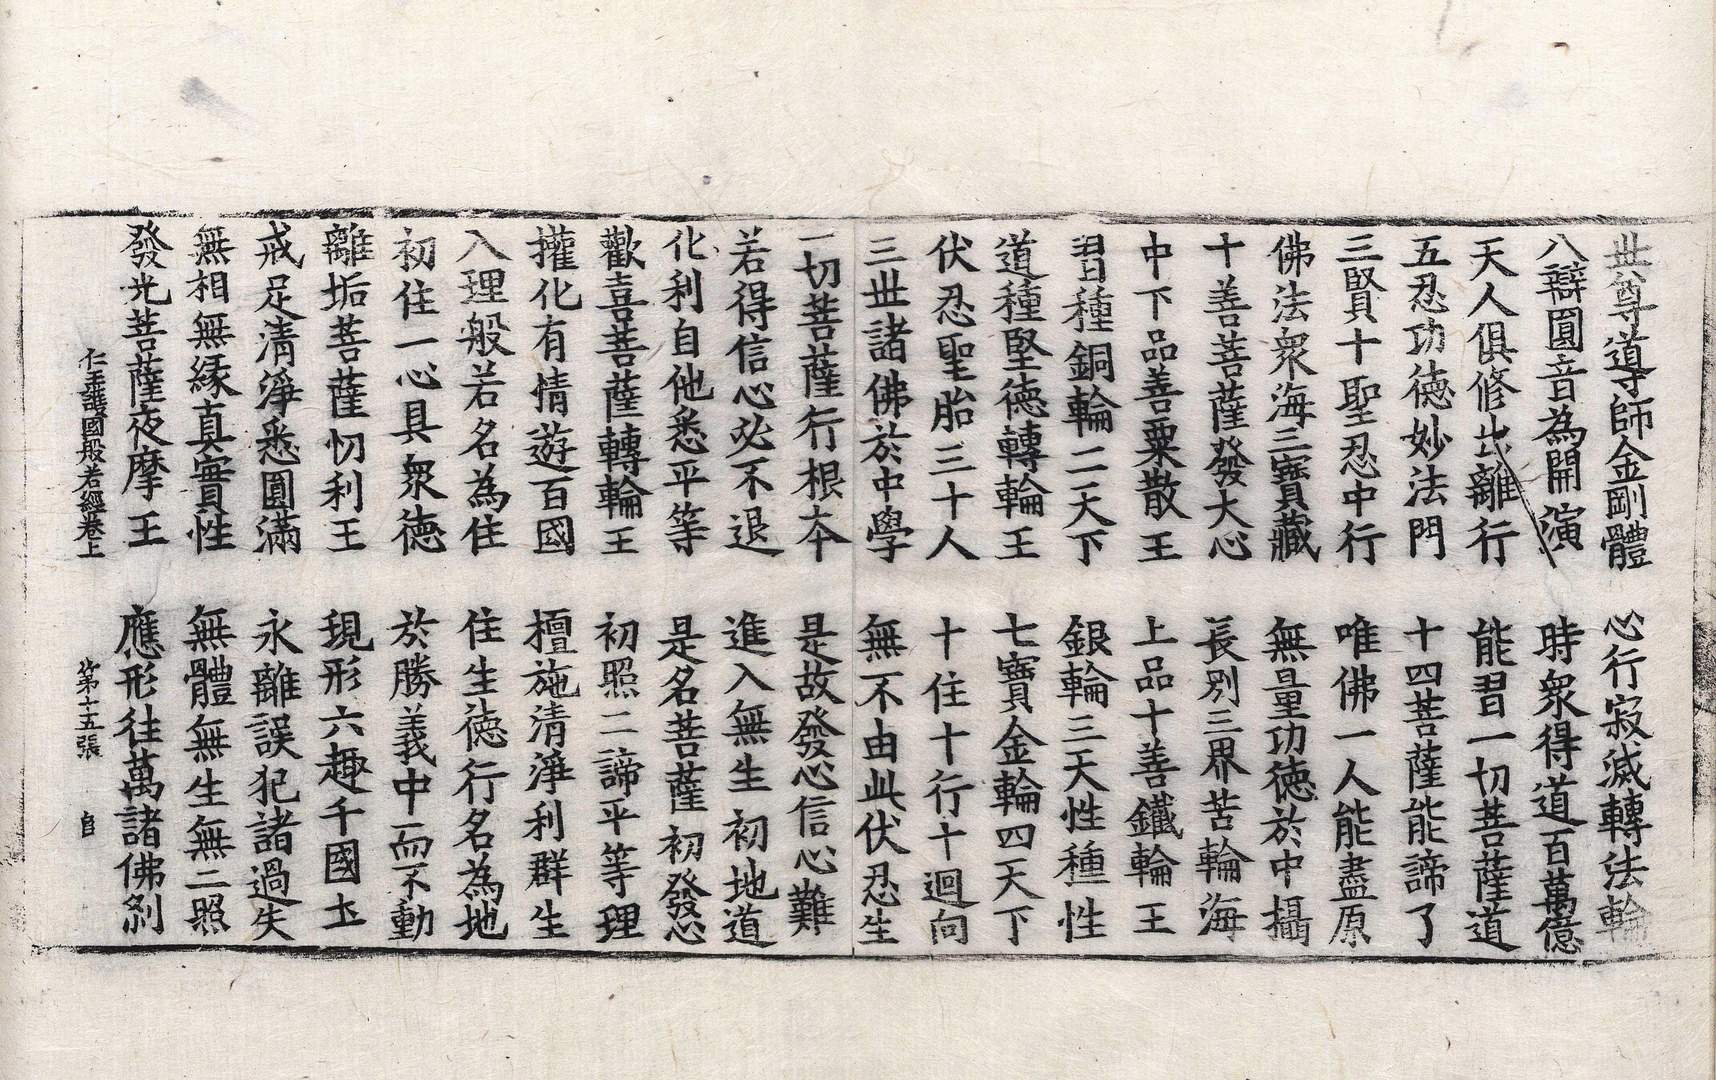 世尊導師金剛體　心行寂滅轉法輪
八辯圓音為開演　時衆得道百萬億
天人俱修出離行　能習一切菩薩道
五忍功德妙法門　十四菩薩能諦了
三賢十聖忍中行　唯佛一人能盡原
佛法衆海三寶藏　無量功德於中攝
十善菩薩發大心　長別三界苦輪海
中下品善粟散王　上品十善鐵輪王
習種銅輪二天下　銀輪三天性種性
道種堅德轉輪王　七寶金輪四天下
伏忍聖胎三十人　十住十行十迴向
三世諸佛於中學　無不由此伏忍生
一切菩薩行根本　是故發心信心難
若得信心必不退　進入無生初地道
化利自他悉平等　是名菩薩初發心
歡喜菩薩轉輪王　初照二諦平等理
權化有情遊百國　檀施清淨利群生
入理般若名為住　住生德行名為地
初住一心具衆德　於勝義中而不動
離垢菩薩忉利王　現形六趣千國土
戒足清淨悉圓滿　永離誤犯諸過失
無相無緣真實性　無體無生無二照
發光菩薩夜摩王　應形往萬諸佛剎
仁王護國般若經卷上　第十五張　自